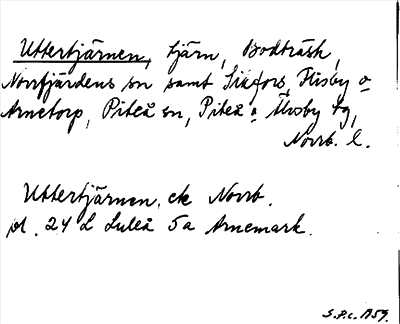 Uttertjärnen, tjärn, Bodträsk,
Norrfjärdens sn samt Sikfors, Flisby o
Arnetorp, Piteå sn, Piteå o Älvsby tg,
Norrb. l.
Uttertjärnen, ek Norrb.
bl. 24 L Luleå 5a Arnemark.
S.P.C. 1959.